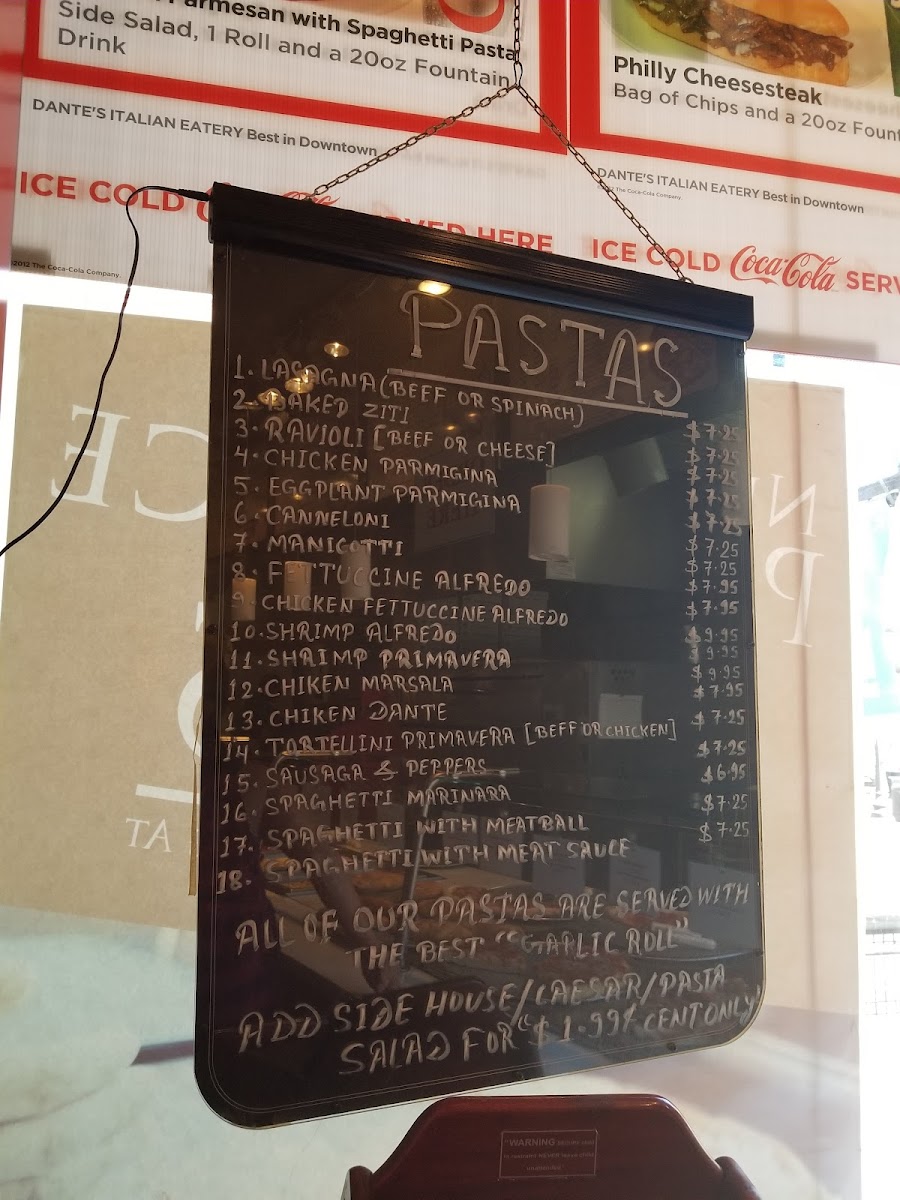 Parmesan with Spaghetti Pasta
Side Salad, 1 Roll and a 20oz Fountain
Drink
Philly Cheesesteak
Bag of Chips and a 20oz Fount
DANTE'S ITALIAN EATERY Best in Downtown
DANTE'S ITALIAN EATERY Best in Downtown
The Coca-Cola Company.
ICE COLD SERVED HERE
ICE COLD Coca-Cola SERV
2012 The Coca-Cola Company.
PASTAS
1. LASAGNA (BEEF OR SPINACH) $7.25
2. BAKED ZITI $7.25
3. RAVIOLI [BEEF OR CHEESE] $7.25
4. CHICKEN PARMIGINA $7.25
5. EGGPLANT PARMIGINA $7.25
6. CANNELONI $7.25
7. MANICOTTI $7.25
8. FETTUCCINE ALFREDO $7.95
9. CHICKEN FETTUCCINE ALFREDO $7.95
10. SHRIMP ALFREDO $9.95
11. SHRIMP PRIMAVERA $9.95
12. CHIKEN MARSALA $9.95
13. CHIKEN DANTE $7.95
14. TORTELLINI PRIMAVERA [BEFF OR CHICKEN] $7.25
15. SAUSAGA & PEPPERS $7.25
16. SPAGHETTI MARINARA $6.95
17. SPAGHETTI WITH MEATBALL $7.25
18. SPAGHETTI WITH MEAT SAUCE $7.25
ALL OF OUR PASTAS ARE SERVED WITH
THE BEST "GARLIC ROLL"
ADD SIDE HOUSE/CAESAR/PASTA
SALAD FOR "$1.99¢ CENT ONLY"
AT
WARNING